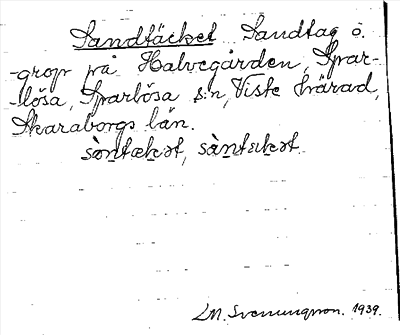 Sandtäcket Sandtag o.
-grop på Halvegården, Spar-
-lösa, Sparlösa s:n, Viste härad,
Skaraborgs län.
sàntækət, sàntækət
L.M. Svenungson. 1939.